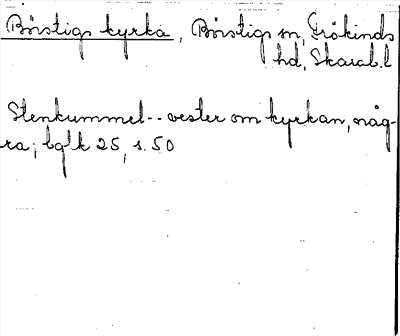 Börstigs kyrka, Börstigs sn, Frökinds
hd, Skarab.l
Stenkummel -- vester om kyrkan, någ-
ra; bglk 25, s. 50